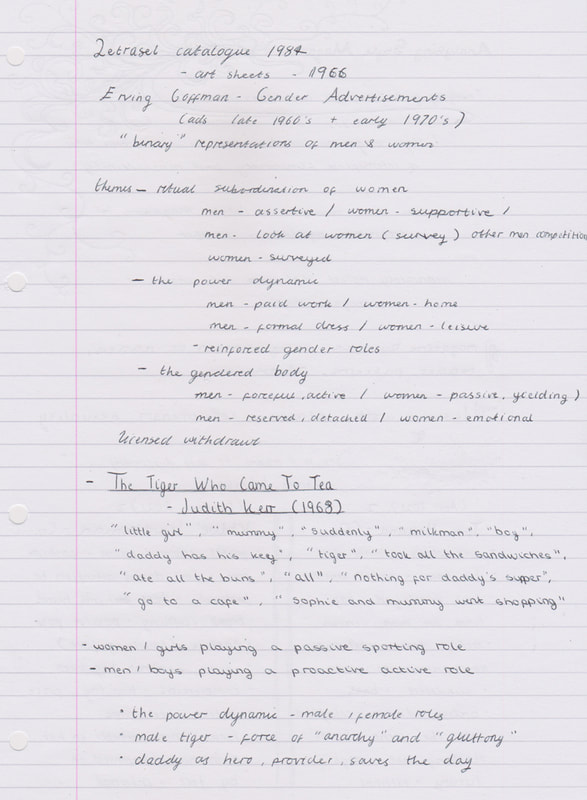 Letrasel catalogue 1984
- art sheets - 1966
Erving Goffman - Gender Advertisements
(ads late 1960's + early 1970's)
"binary" representations of men & women
themes - ritual subordination of women
men - assertive / women - supportive /
men - look at women (survey) other men competition
women - surveyed
- the power dynamic
men - paid work / women - home
men - formal dress / women - leisure
- reinforced gender roles
- the gendered body
men - forceful, active / women - passive, yielding)
men - reserved, detached / women - emotional
licensed withdrawl
- The Tiger Who Came To Tea
- Judith Kerr (1968)
"little girl", "mummy", "suddenly", "milkman", "boy",
"daddy has his key", "tiger", "took all the sandwiches",
"ate all the buns", "all", "nothing for daddy's supper",
"go to a cafe", "sophie and mummy went shopping"
- women / girls playing a passive sporting role
- men / boys playing a proactive active role
• the power dynamic - male / female roles
• male tiger - force of "anarchy" and "gluttony"
• daddy as hero, provider, saves the day